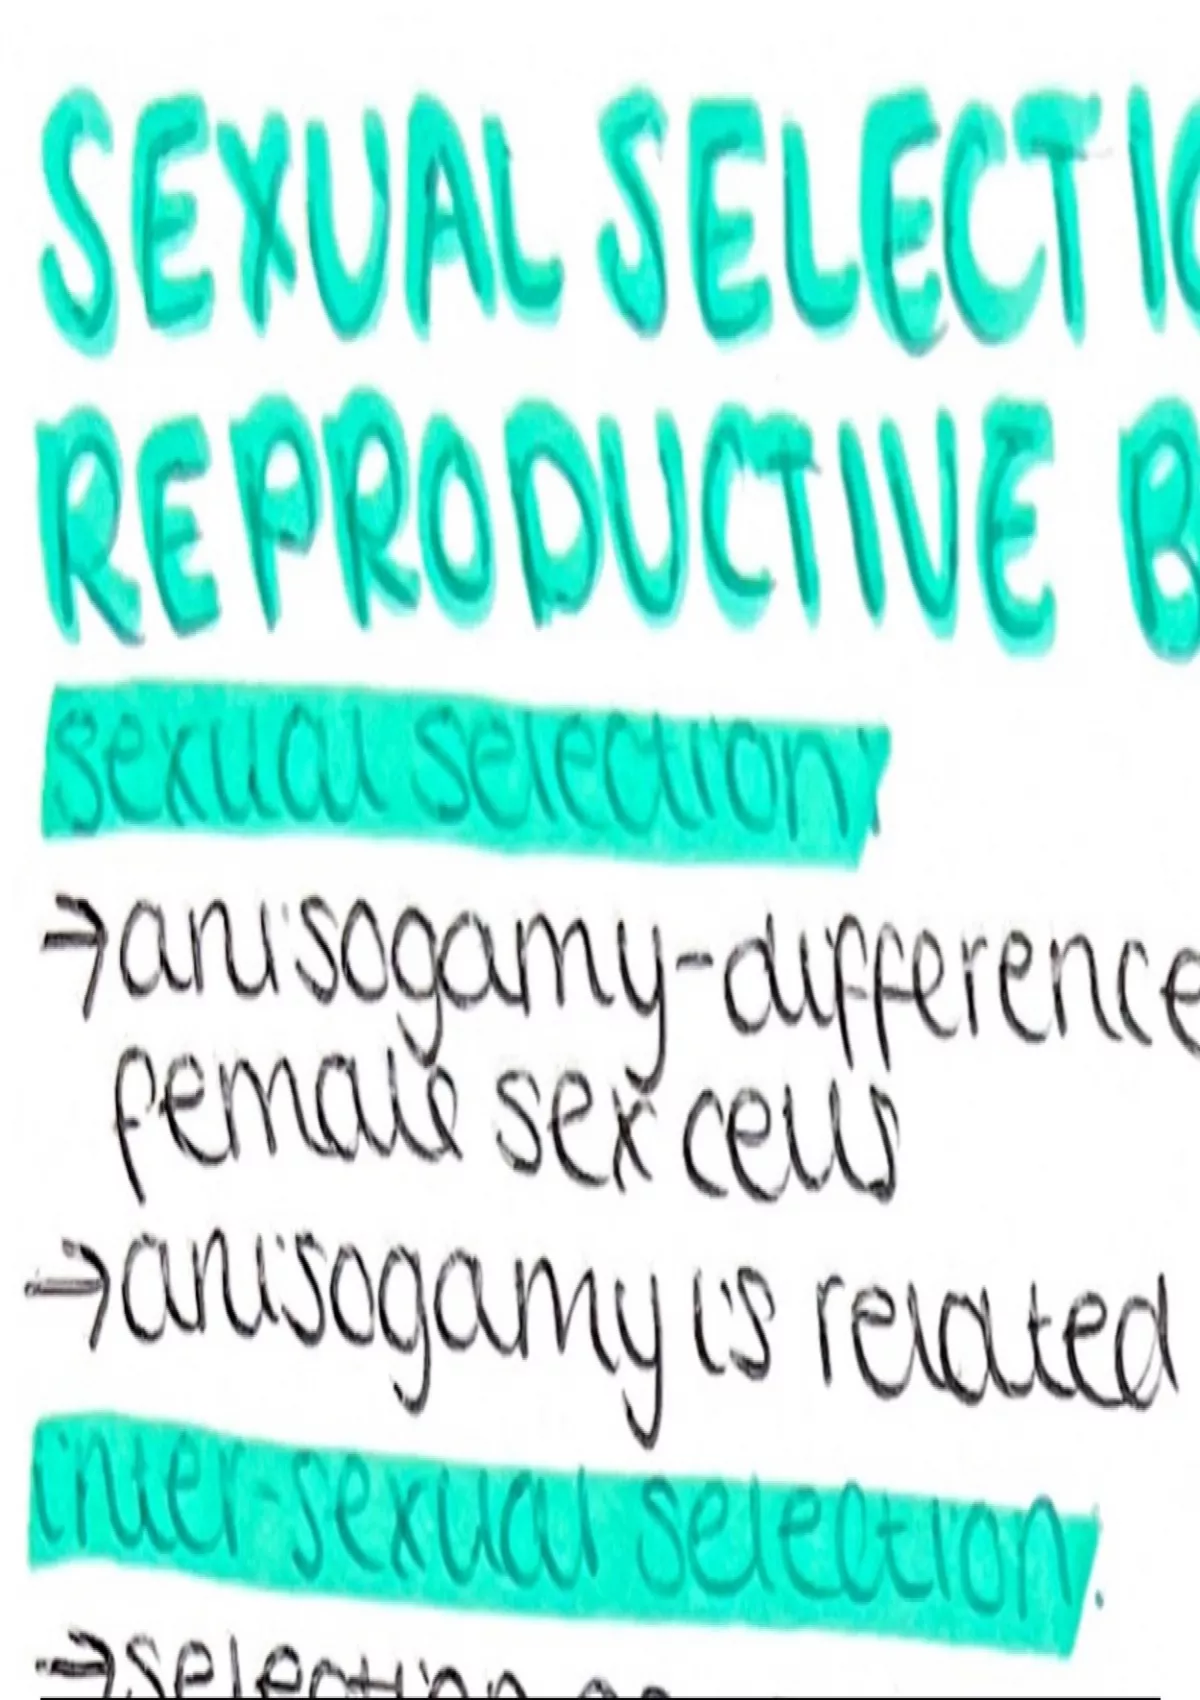 SEXUAL SELECTIO
REPRODUCTIVE B
sexual selection:
→anisogamy-difference
female sex cells
→anisogamy is related
inter-sexual selection.
→selection